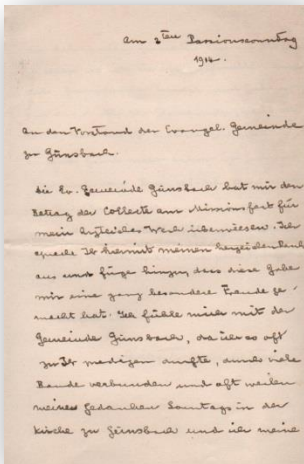 Am 2ten Passionssonntag
1914.
An den Vorstand der Evangel. Gemeinde
zu Günsbach.
Die Ev. Gemeinde Günsbach hat mir den
Betrag der Collecte am Missionsfest für
mein ärztliches Werk überwiesen. Ich
spreche Ihr hiermit meinen herzlichen Dank
aus und füge hinzu, dass diese Gabe
mir eine ganz besondere Freude ge-
macht hat. Ich fühle mich mit der
Gemeinde Günsbach, da ich so oft
zu Ihr predigen durfte, durch viele
Bande verbunden und oft weilen
meine Gedanken Sonntags in der
Kirche zu Günsbach und ich meine